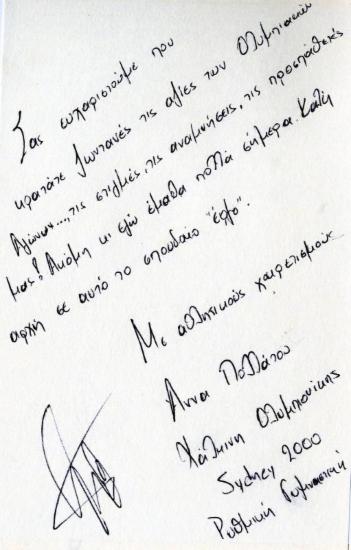 Σας ευχαριστούμε που
κρατάτε ζωντανές τις αξίες των Ολυμπιακών
Αγώνων..., τις στιγμές, τις αναμνήσεις, τις προσπάθειές
μας! Ακόμη κι εγώ έμαθα πολλά σήμερα. Καλή
αρχή σε αυτό το σπουδαίο "έργο".
Με αθλητικούς χαιρετισμούς
Άννα Πολλάτου
Χάλκινη Ολυμπιονίκης
Sydney 2000
Ρυθμική Γυμναστική